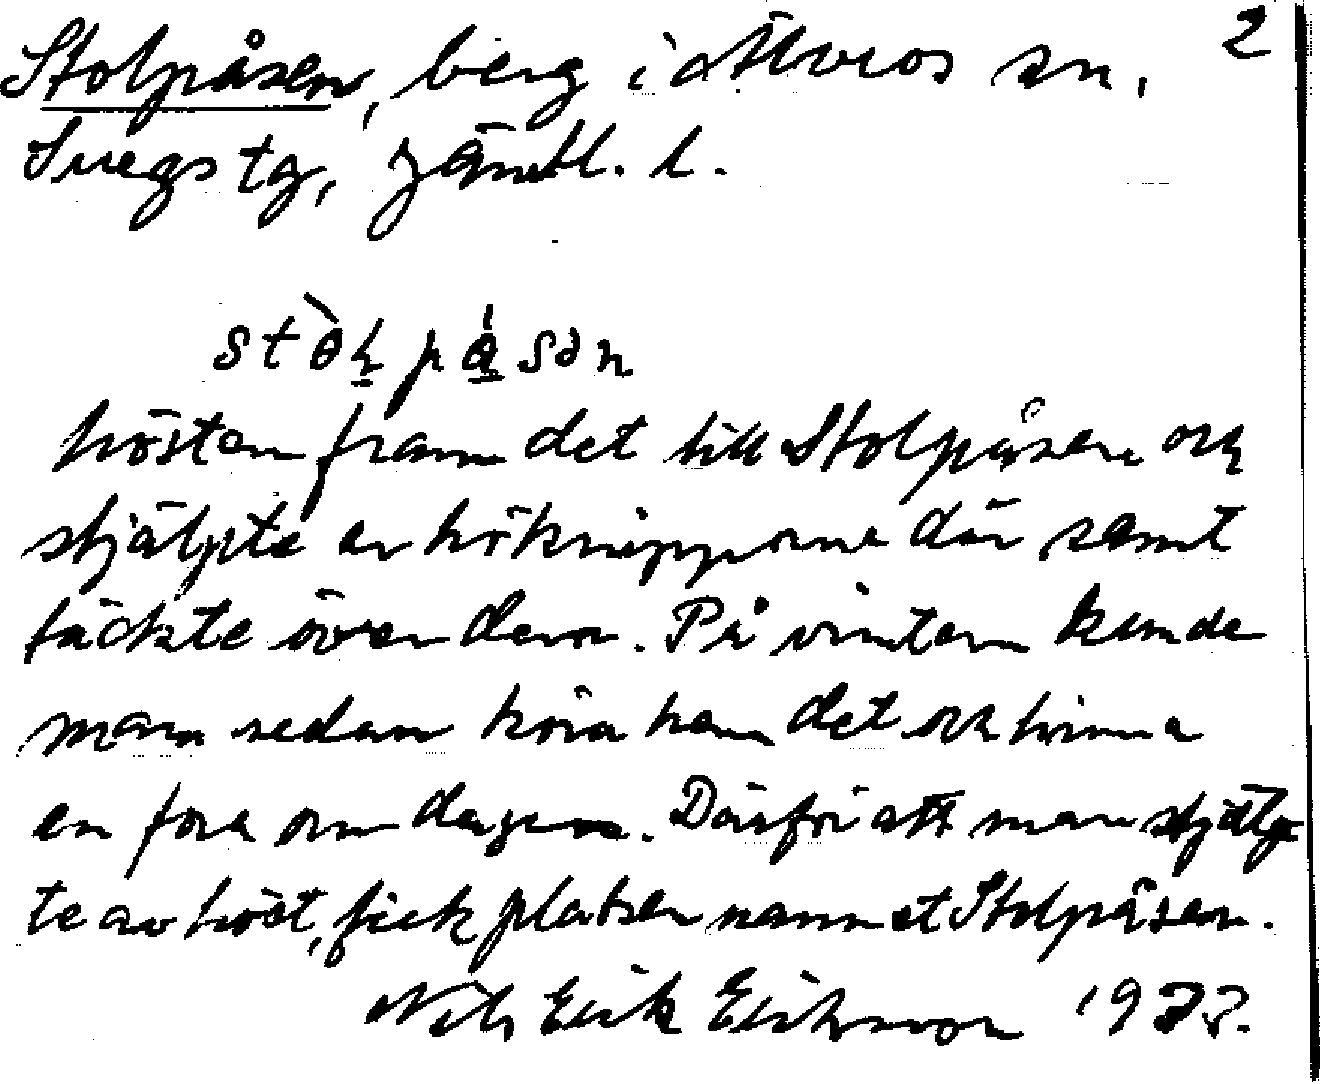 2
Stolpåsen, berg i Älvros sn,
Svegs tg, Jämtl. l.
stòlpåsən
hösten fram det till Stolpåsen och
stjälpte av höknipporna där samt
täckte över dem. På vintern kunde
man sedan köra hem det och hinna
en fora om dagen. Därför att man stjälp-
te av höet, fick platsen namnet Stolpåsen.
Nils Erik Eriksson 1973.